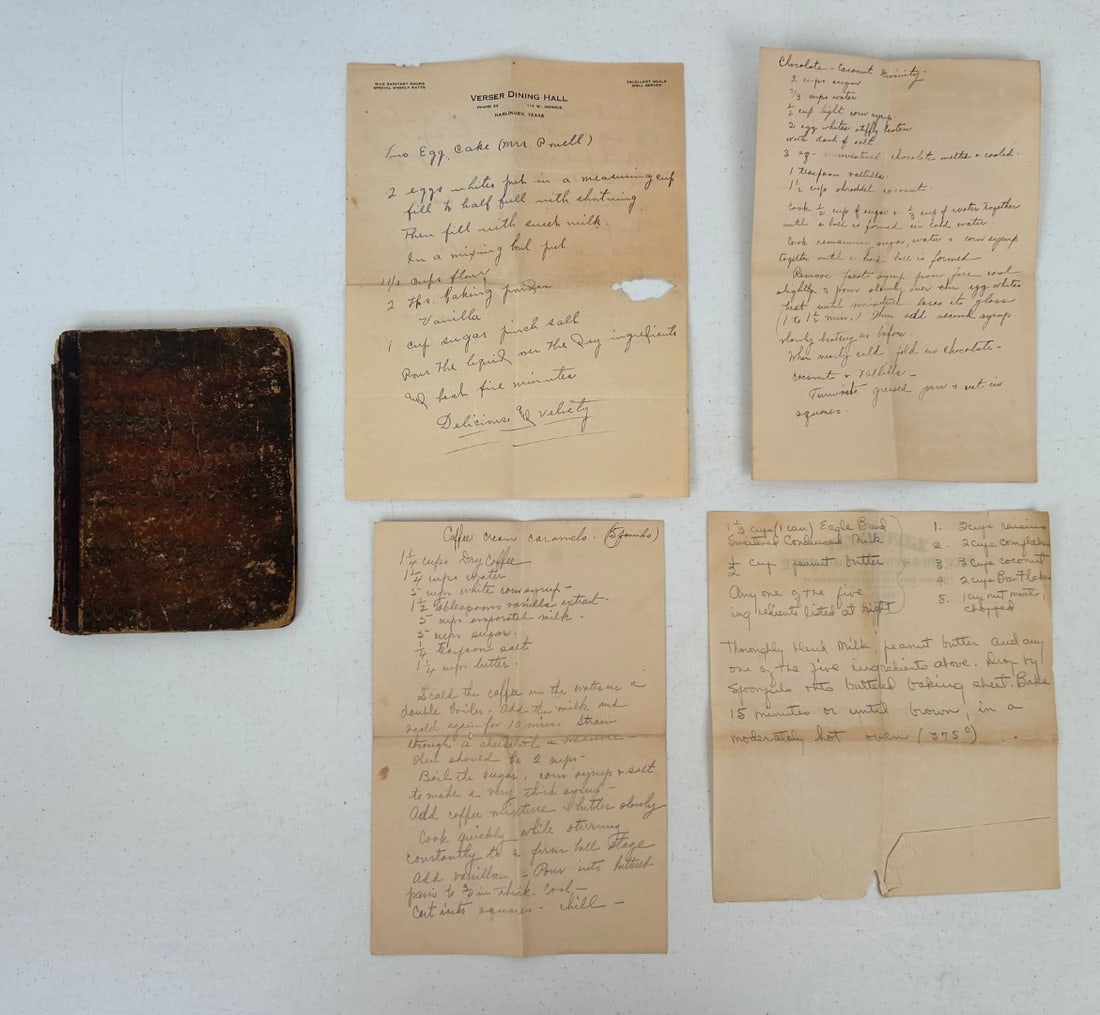 NICE SANITARY ROOMS
SPECIAL WEEKLY RATES
EXCELLENT MEALS
WELL SERVED
VERSER DINING HALL
PHONE 85 114 W. MONROE
HARLINGEN, TEXAS
Two Egg Cake (Mrs Powell)
2 eggs whites put in a measuring cup
fill to half full with shortning
Then fill with sweet milk.
In a mixing bowl put
cups flour
2 tps. baking powder
Vanilla
1 cup sugar pinch salt
Pour the liquid over the dry ingredients
and beat five minutes
Delicious and velvety
Chocolate - Coconut Divinity -
2 cups sugar
2/3 cups water
1/2 cup light corn syrup
2 egg whites stiffly beaten
with dash of salt
3 sq. unsweetened chocolate melted & cooled.
1 teaspoon vanilla
1 1/2 cups shredded coconut.
Cook 1/2 cup of sugar & 1/3 cup of water together
until a ball is formed in cold water
Cook remaining sugar, water & corn syrup
together until a hard ball is formed
Remove first syrup from fire, cool
slightly & pour slowly over the egg whites
beat until mixture loses its gloss
(1 to 1 1/2 min.) Then add second syrup
slowly beating as before.
When nearly cold fold in chocolate -
coconut & vanilla -
Turn into greased pan & cut in
squares.
Coffee cream caramels. (5 pounds)
1 1/4 cups Dry Coffee
1 1/4 cups water
5 cups white corn syrup -
1 1/2 tablespoons vanilla extract
5 cups evaporated milk -
5 cups sugar.
1/4 teaspoon salt
1 1/4 cups butter.
Scald the coffee in the water in a
double boiler. Add the milk and
scald again for 10 min. Strain
through a & measure -
there should be 2 cups -
Boil the sugar, corn syrup & salt
to make a very thick syrup -
Add coffee mixture & butter slowly
Cook quickly while stirring
constantly to a firm ball stage
Add vanilla - Pour into buttered
pans to thick. Cool -
Cut into squares - chill -
1 1/3 cups (1 can) Eagle Brand
Sweetened Condensed Milk
1/2 cup peanut butter
Any one of the five
ingredients listed at right
1. 2 cups raisins
2. 2 cups cornflakes
3. 3 cups coconut
4. 2 cups Bran Flakes
5. 1 cup nut meats,
chopped
Thoroughly blend Milk, peanut butter and any
one of the five ingredients above. Drop by
Spoonfuls onto buttered baking sheet. Bake
15 minutes or until brown, in a
moderately hot oven (375°)